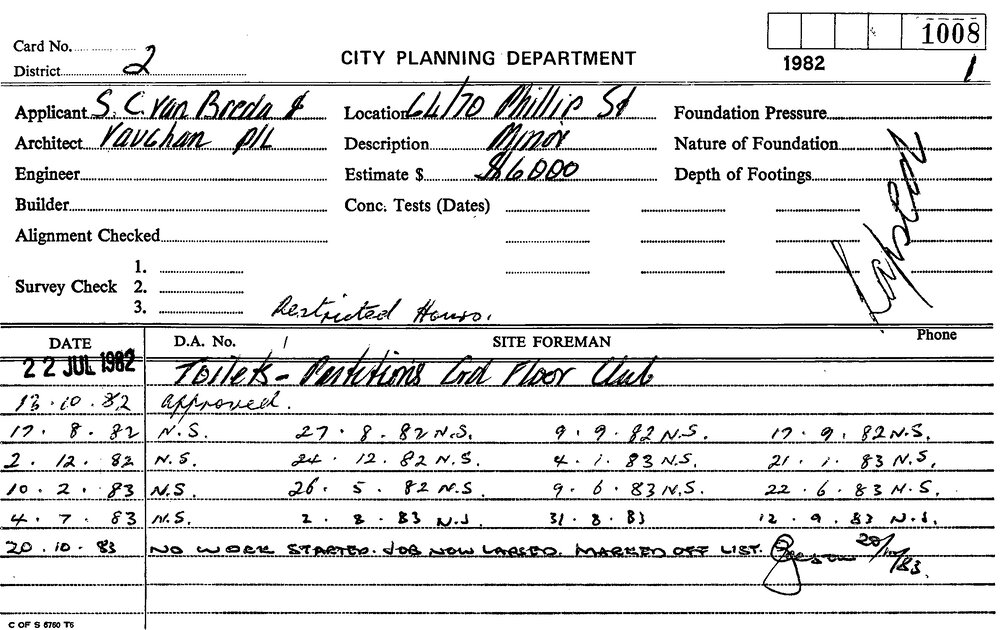 1008
Card No.
District 2
CITY PLANNING DEPARTMENT
1982
1
Applicant S. C. van Breda &
Location 64/70 Phillip St
Foundation Pressure
Architect Vaughan P/L
Description Minor
Nature of Foundation
Engineer
Estimate $ $6000
Depth of Footings
Builder
Conc. Tests (Dates)
Alignment Checked
Lapsed
Survey Check
1.
2.
3.
Restricted Hours.
DATE
D.A. No.
SITE FOREMAN
Phone
22 JUL 1982 Toilets - Partitions Grd Floor Club
13.10.82 approved.
17.8.82 N.S. 27.8.82 N.S. 9.9.82 N.S. 17.9.82 N.S.
2.12.82 N.S. 24.12.82 N.S. 4.1.83 N.S. 21.1.83 N.S.
10.2.83 N.S. 26.5.82 N.S. 9.6.83 N.S. 22.6.83 N.S.
4.7.83 N.S. 2.8.83 N.S. 31.8.83 12.9.83 N.S.
20.10.83 NO WORK STARTED. JOB NOW LAPSED. MARKED OFF LIST. 20/10/83.
C OF S 5760 T6